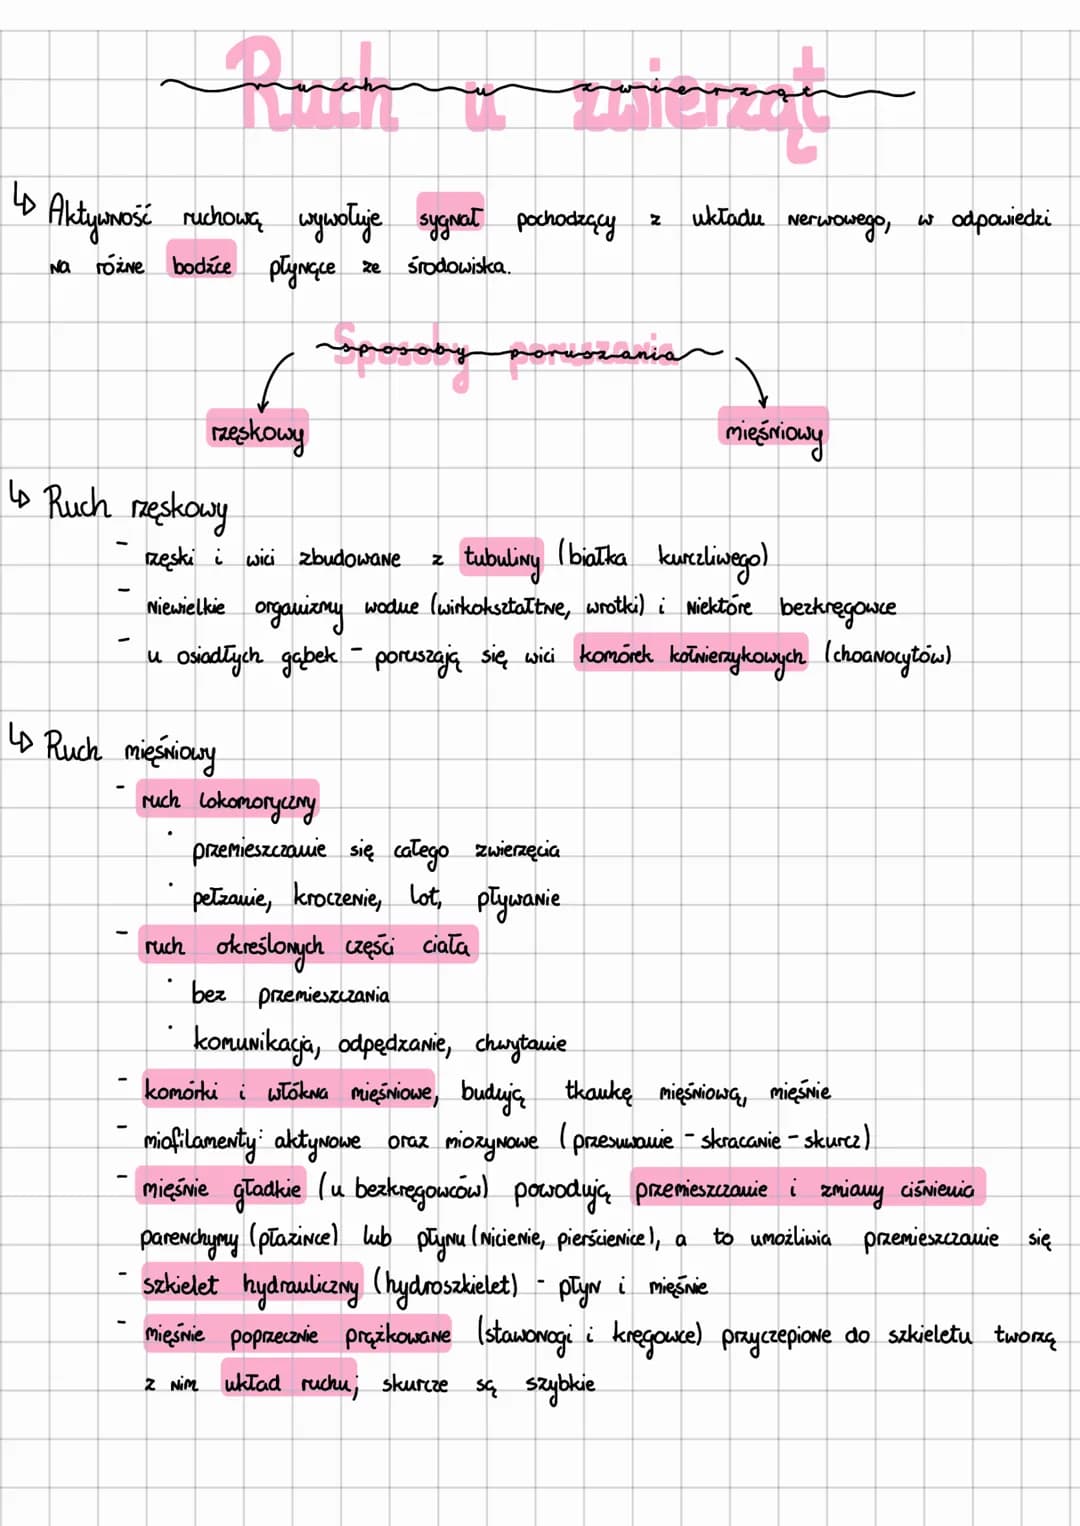 Ruch u zwierząt
↳ Aktywność ruchową wywołuje sygnał pochodzący z układu nerwowego, w odpowiedzi
na różne bodźce płynące ze środowiska.
Sposoby poruszania
rzęskowy mięśniowy
↳ Ruch rzęskowy
- rzęski i wici zbudowane z tubuliny (białka kurczliwego)
- Niewielkie organizmy wodne (wirkokształtne, wrotki) i niektóre bezkręgowce
- u osiadłych gąbek - poruszają się wici komórek kołnierzykowych (choanocytów)
↳ Ruch mięśniowy
- ruch lokomoryczny
· przemieszczanie się całego zwierzęcia
· pełzanie, kroczenie, lot, pływanie
- ruch określonych części ciała
· bez przemieszczania
· komunikacja, odpędzanie, chwytanie
- komórki i włókna mięśniowe, budują tkankę mięśniową, mięśnie
- miofilamenty: aktynowe oraz miozynowe (przesuwanie - skracanie - skurcz)
- mięśnie gładkie (u bezkręgowców) powodują przemieszczanie i zmiany ciśnienia
parenchymy (płazińce) lub płynu (Nicienie, pierścienice), a to umożliwia przemieszczanie się
- szkielet hydrauliczny (hydroszkielet) - płyn i mięśnie
- mięśnie poprzecznie prążkowane (stawonogi i kręgowce) przyczepione do szkieletu tworzą
z nim układ ruchu; skurcze są szybkie